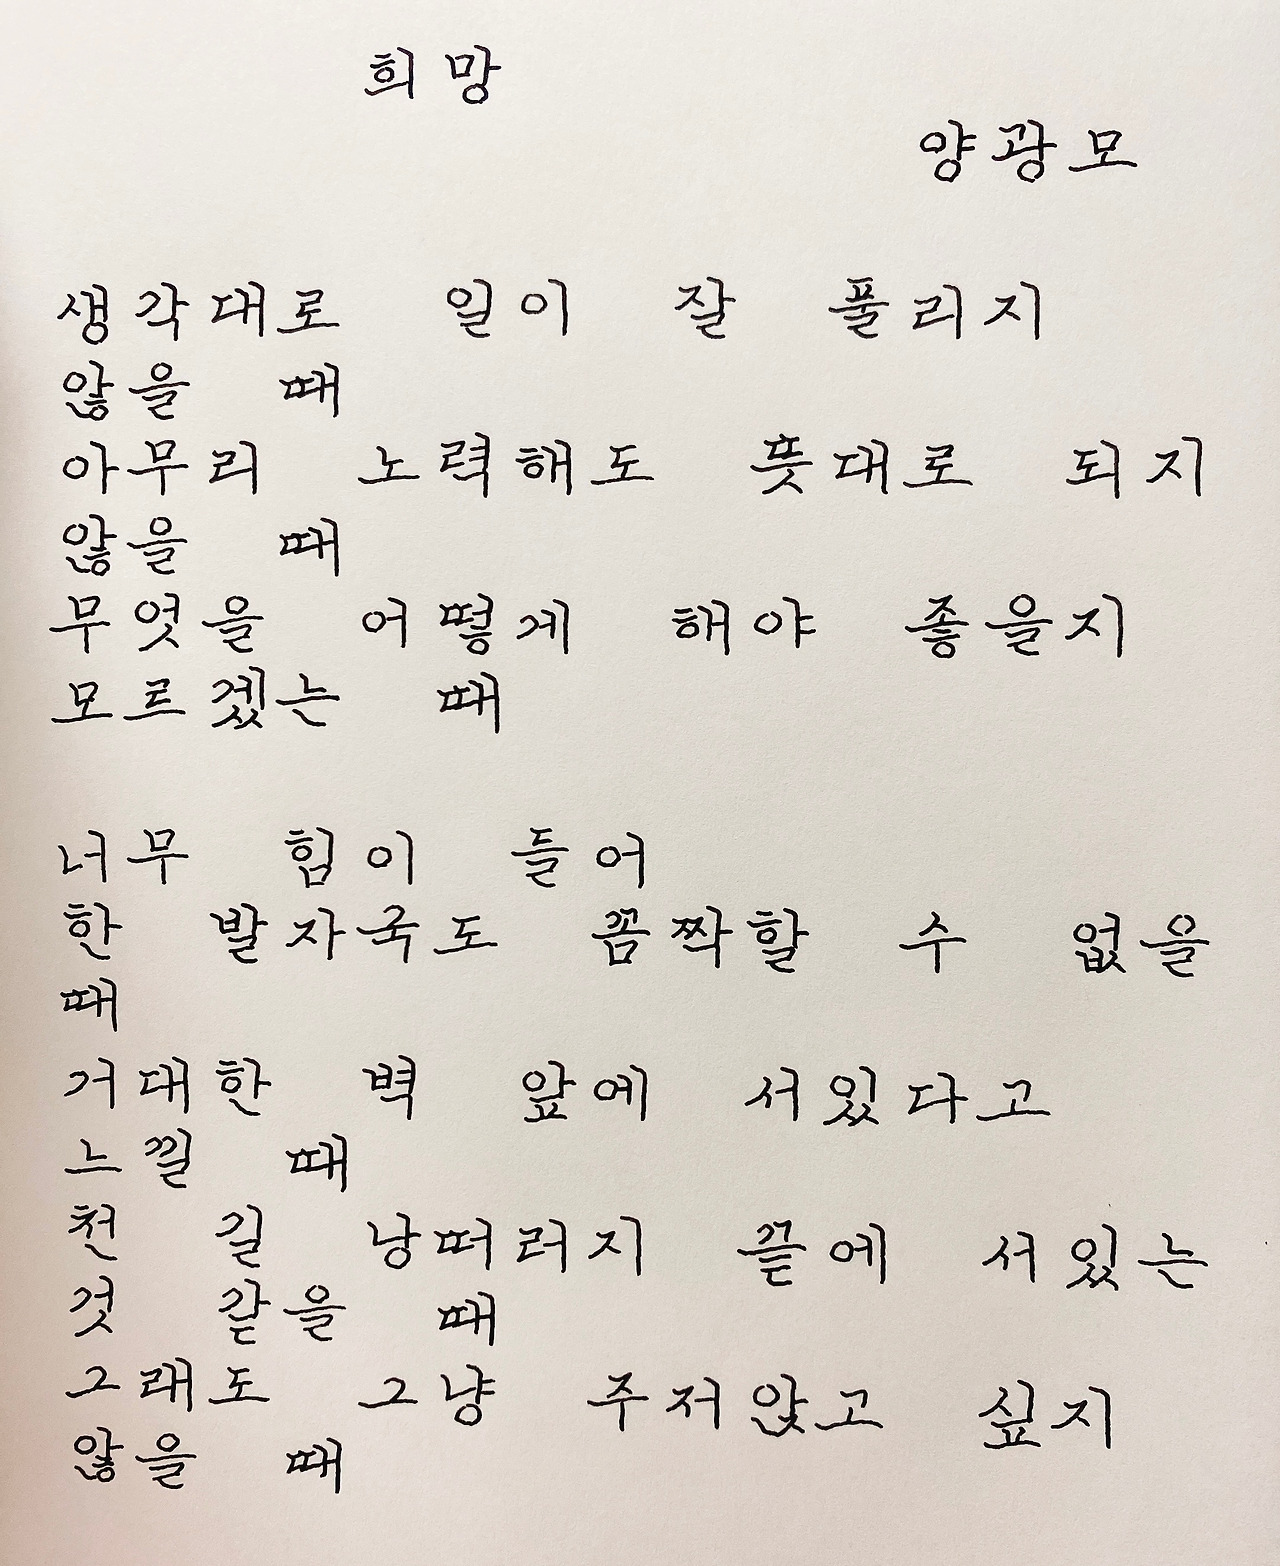 희망
양광모
생각대로 일이 잘 풀리지
않을 때
아무리 노력해도 뜻대로 되지
않을 때
무엇을 어떻게 해야 좋을지
모르겠는 때
너무 힘이 들어
한 발자국도 꼼짝할 수 없을
때
거대한 벽 앞에 서있다고
느낄 때
천 길 낭떠러지 끝에 서있는
것 같을 때
그래도 그냥 주저앉고 싶지
않을 때